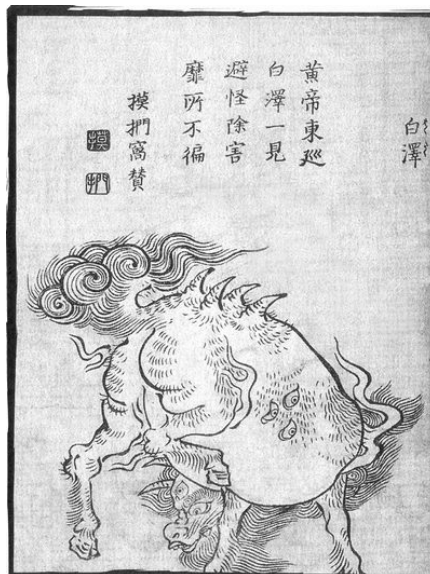 白澤
黃帝東巡
白澤一見
避怪除害
靡所不徧
摸捫窩賛
摸
捫